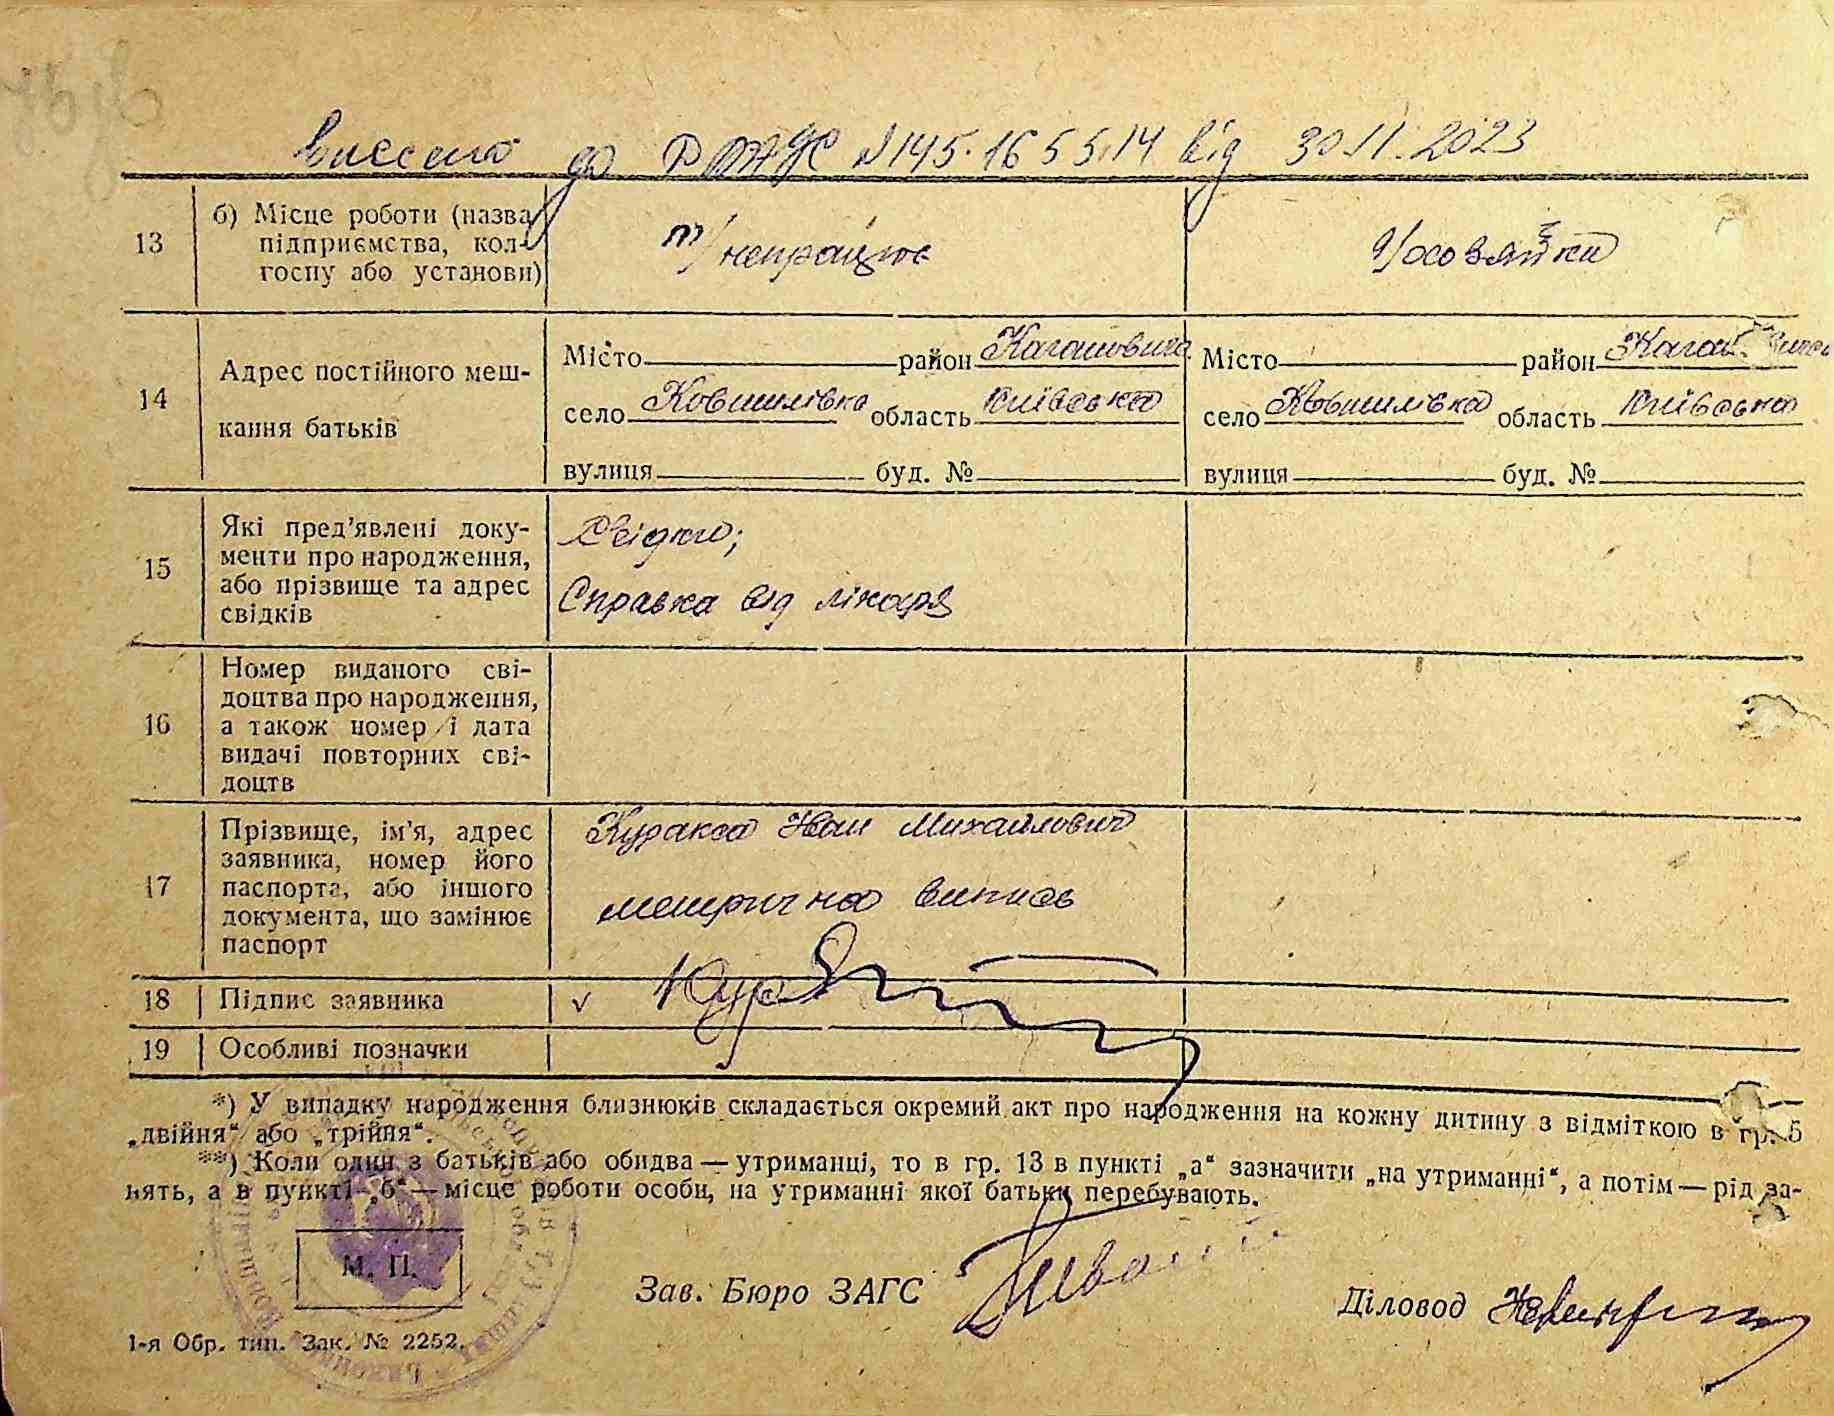 внесено до ДРАЦС №145.1655.14 від 30.11.2023
13
б) Місце роботи (назва
підприємства, кол-
госпу або установи)
непрацює
Місто район Кагановича Місто район
14
Адрес постійного меш-
кання батьків
село Ковшилівка область Київська село Ковшилівка область Київська
вулиця буд. № вулиця буд. №
15
Які пред'явлені доку-
менти про народження,
або прізвище та адрес
свідків
Свідки;
Справка від лікаря
16
Номер виданого сві-
доцтва про народження,
а також номер і дата
видачі повторних сві-
доцтв
17
Прізвище, ім'я, адрес
заявника, номер його
паспорта, або іншого
документа, що замінює
паспорт
Куракса Иван Михайлович
метрична випись
18 Підпис заявника v
19 Особливі позначки
*) У випадку народження близнюків складається окремий акт про народження на кожну дитину з відміткою в гр. 5
„двійня“ або „трійня“.
**) Коли один з батьків або обидва — утриманці, то в гр. 13 в пункті „а“ зазначити „на утриманні“, а потім — рід за-
нять, а в пункті „б“ — місце роботи особи, на утриманні якої батьки перебувають.
М. П.
Зав. Бюро ЗАГС
Діловод
1-я Обр. тип. Зак. № 2252.